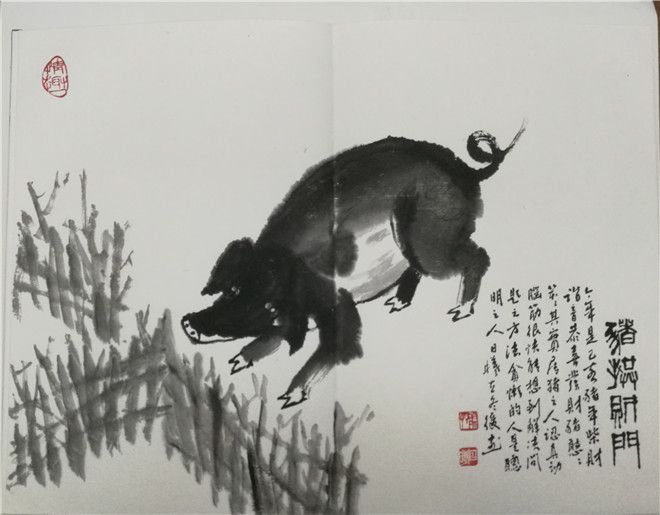 豬拱財門
今年是己亥豬年柴財
諧音恭喜發財豬憨〻
笨〻其實屬豬之人認真動
腦筋很快能想到解決問
題之方法貪懶的人是聰
明之人日曦